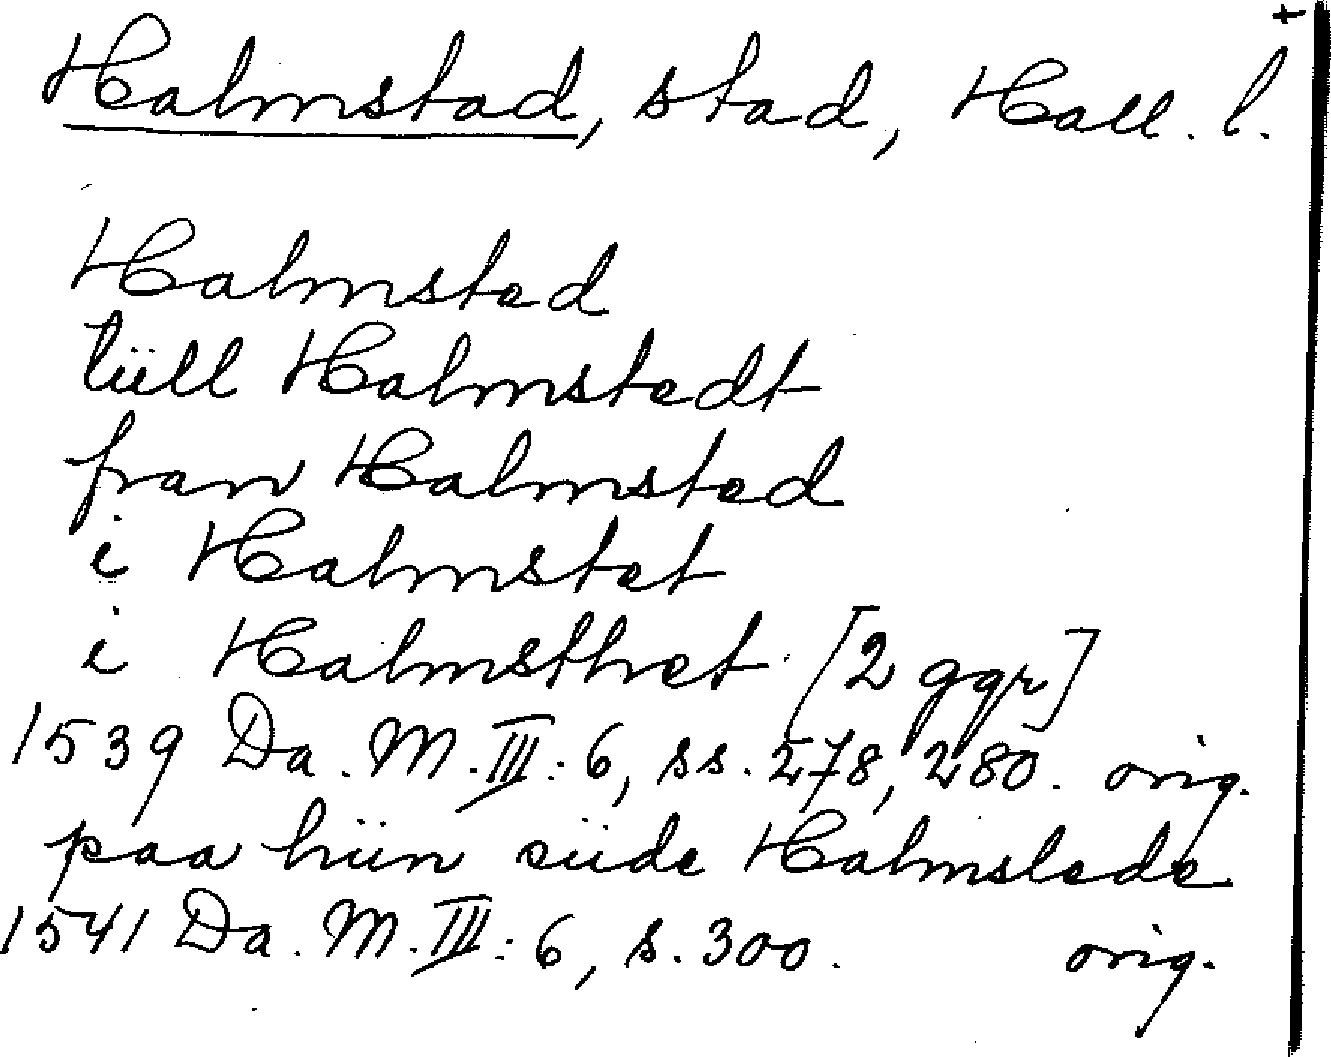 +
Halmstad, stad, Hall. l.
Halmsted
tiill Halmstedt
fran Halmsted
i Halmstet
i Halmsthet [2 ggr]
1539 Da. M. III: 6, ss. 278, 280. orig.
paa hiin siide Halmstede
1541 Da. M. III: 6, s. 300. orig.